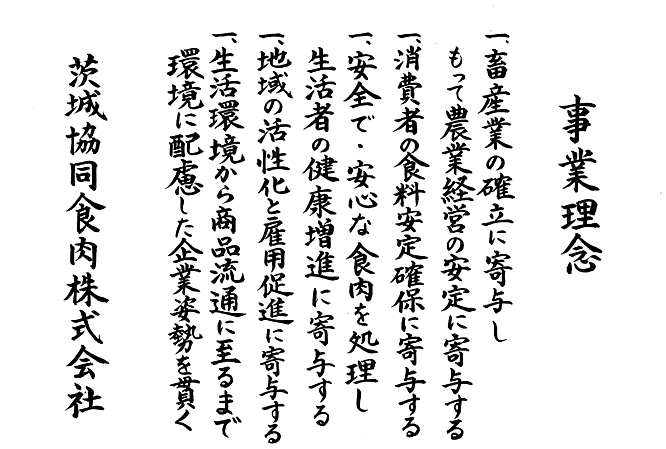 事業理念
一、畜産業の確立に寄与し
もって農業経営の安定に寄与する
一、消費者の食料安定確保に寄与する
一、安全で・安心な食肉を処理し
生活者の健康増進に寄与する
一、地域の活性化と雇用促進に寄与する
一、生活環境から商品流通に至るまで
環境に配慮した企業姿勢を貫く
茨城協同食肉株式会社